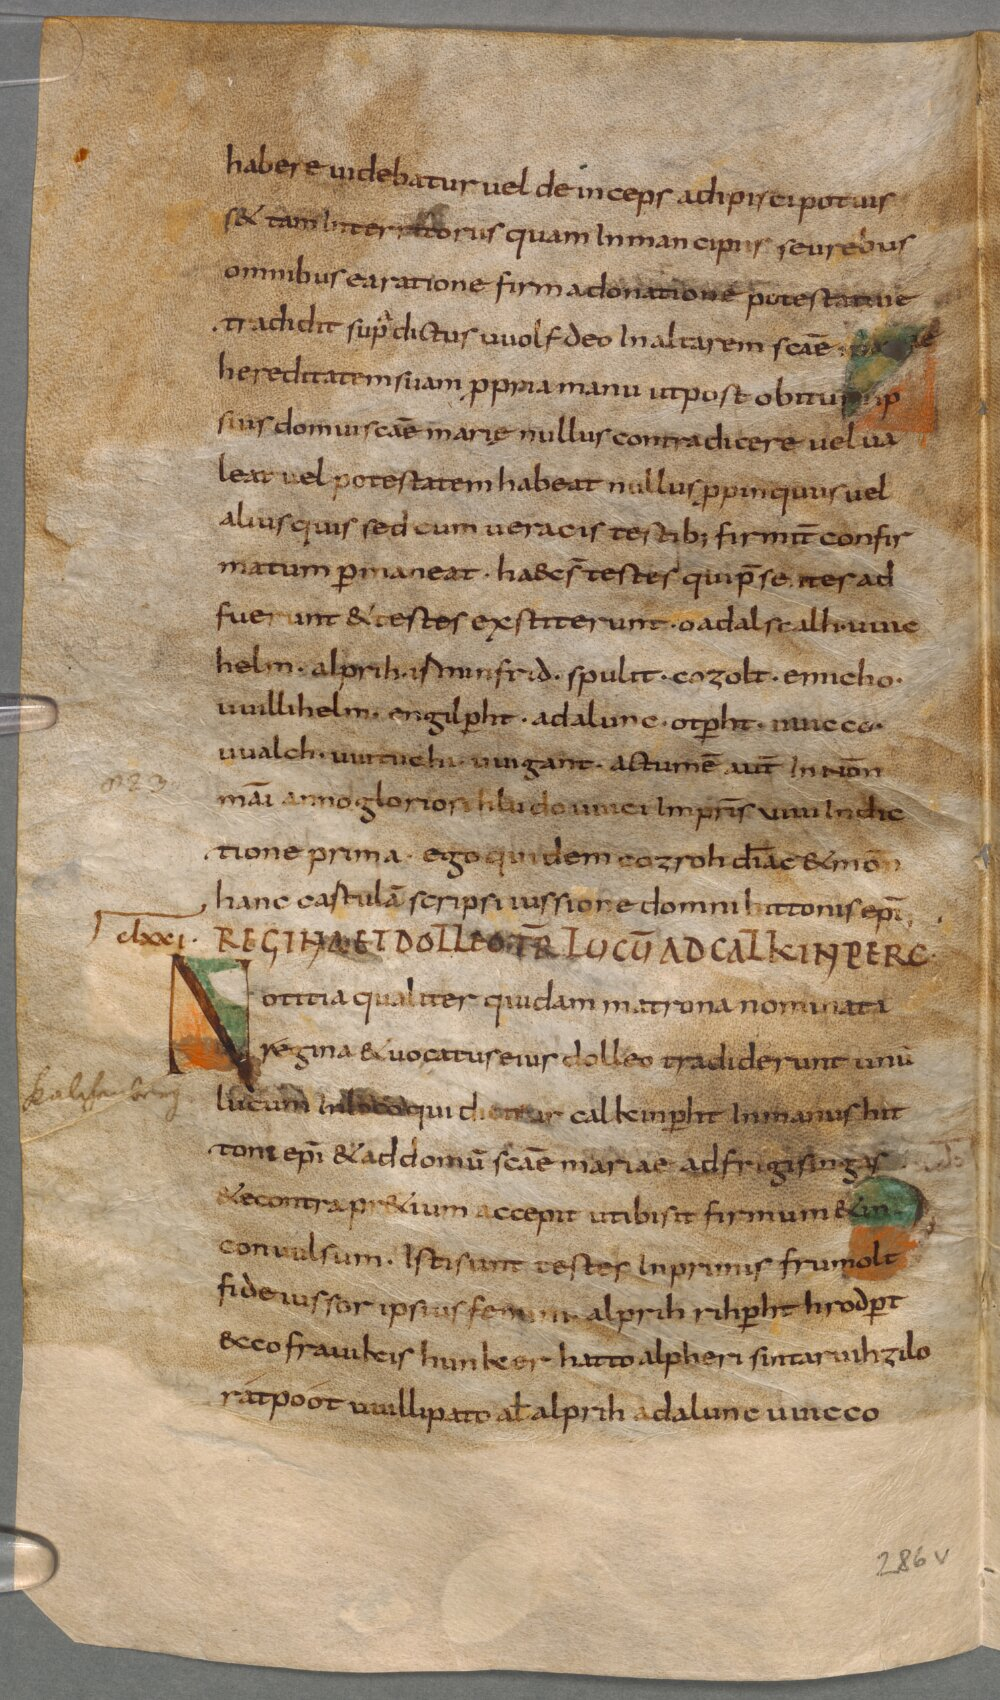 habere uidebatur uel deinceps adipisci potuis
s& tam In territoriis quam In mancipiis seu rebus
omnibus ea ratione firma donatione potestatiue
tradidit supͣdictus uuolfdeo In altarem scāe mariae
hereditatem suam ꝓpria manu ut post obitum ip
sius domui scāe marię nullus contradicere uel ua
leat uel potestatem habeat nullus ꝓpinquus uel
alius quis sed cum ueracis testib; firmū confir
matum ꝑmaneat · haec s̄ testes qui p̄sentes ad
fuerunt & testes exstiterunt · oadalscalh · uuic
helm · alprih · isanfrid · spulit · cozolt · emicho ·
uuillihelm · engilꝑht · adalunc · otꝑht · uuicco ·
uualch · uurtuchi · uuigant · actum ē aut̄
māi anno gloriosi hludouuici Imp̄ris VIIII Indic
tione prima · ego quidem cozroh diāc & mon
hanc cartulā scripsi iussione domni hittonis ep̄i
clxxi · REGINA ET DOLLEO TR̄ LUCŪ AD CALKINPERC ·
Notitia qualiter quidam matrona nominata
regina & uocatus eius dolleo tradiderunt unū
kalchenberg
lucum In loco qui dicitur calkinꝑht In manus hit
toni ep̄i & ad domū scāe mariae ad frigisingas
& econtra pr&ium accepit ut ibi sit firmum & in
conuulsum · Isti sunt testes Inprimis frumolt
fideiussor ipsius femine alprih rihꝑht hrodꝑt
&co frauikis hunker hatto alpheri sintaruuihzilo
ratpoot uuillipato al̄ alprih adalunc uuicco
286v